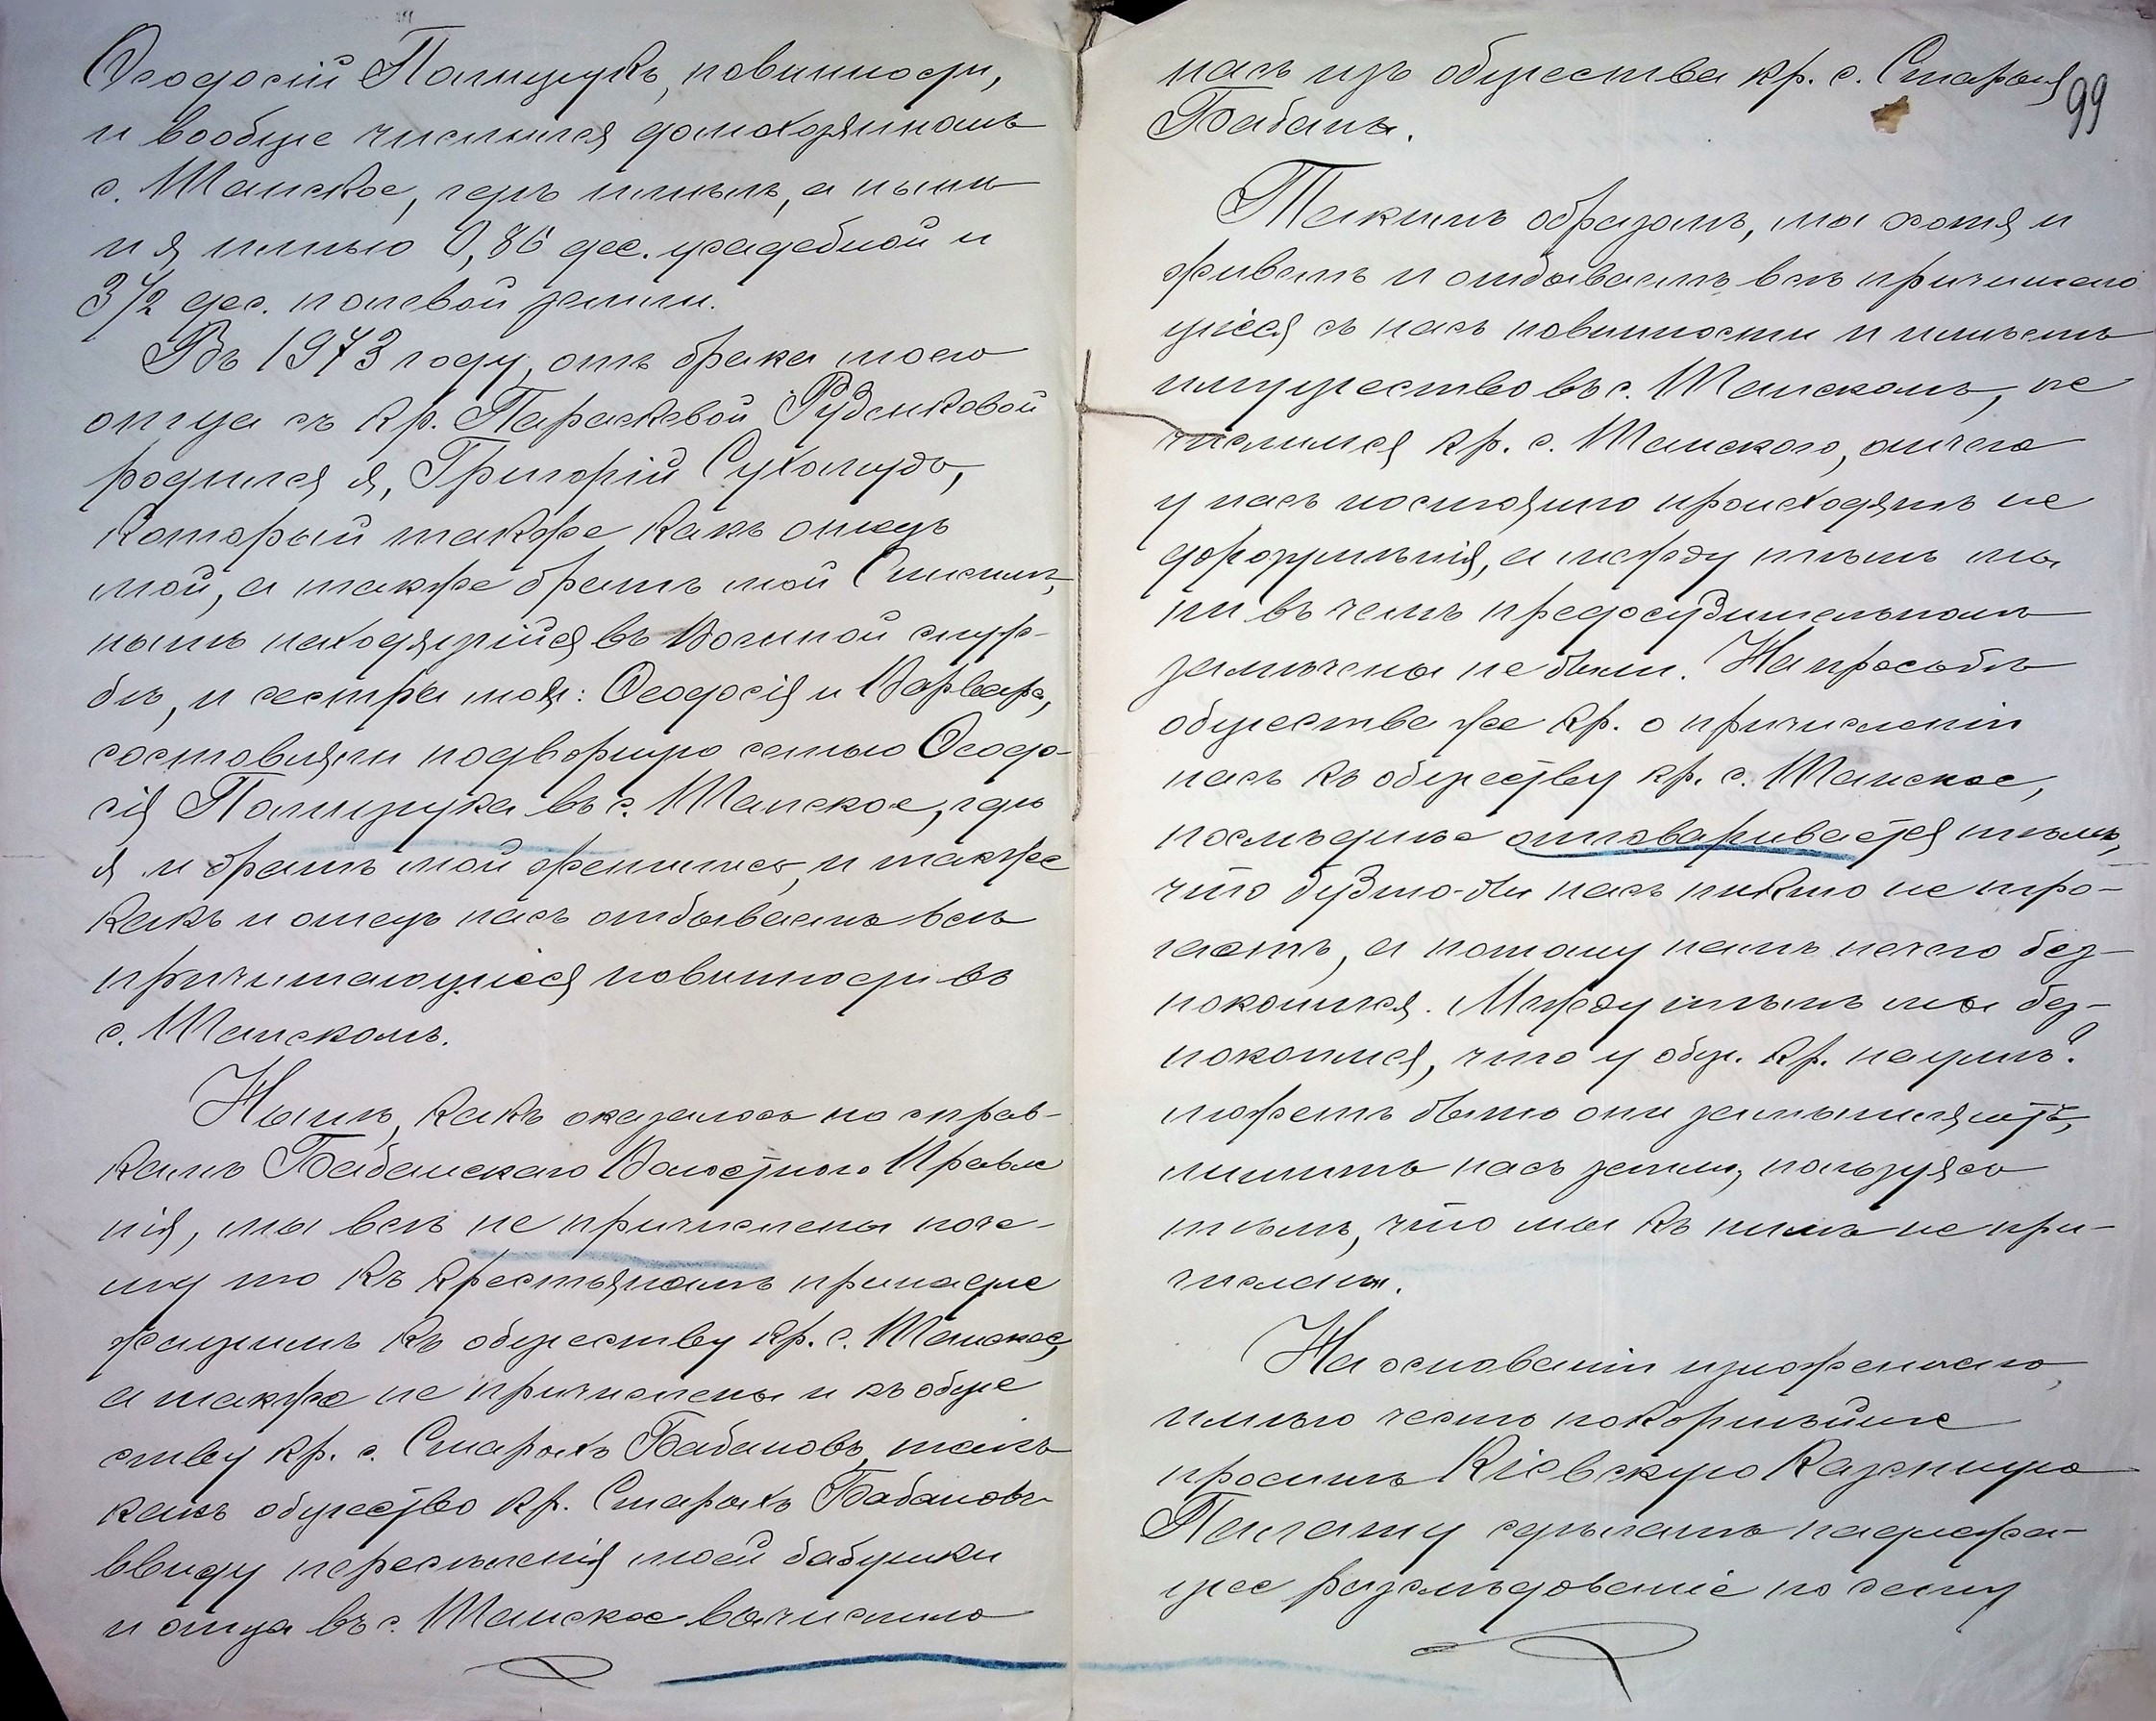 Ѳеодосій Полищукъ, повинности,
и вообще числился домохозяиномъ
с. Танское, гдѣ имѣлъ, а нынѣ
и я имѣю 0,86 дес. усадебной и
3 1/2 дес. полевой земли.
Въ 1873 году, отъ брака моего
отца съ кр. Параскевой Рудыковой
родился я, Григорій Сухолудъ,
который также какъ отецъ
мой, а также братъ мой
нынѣ находящійся въ Военной служ-
бѣ, и сестры мои: Ѳеодосія и Варвара,
составляли подворную семью Ѳеодо-
сія Полищука въ с. Танское, гдѣ
я и братъ мой женились, и также
какъ и отецъ нашъ отбываемъ всѣ
причитающіеся повинности въ
с. Танскомъ.
Нынѣ, какъ оказалось по справ-
камъ Бабанскаго Волостного Правле
нія, мы всѣ не причислены поче-
му то къ крестьянамъ принадле
жащимъ къ обществу кр. с. Танское,
а также не причислены и къ обще
ству кр. с. Старыхъ Бабановъ, такъ
какъ общество кр. Старыхъ Бабановъ
ввиду переселенія моей бабушки
и отца въ с. Танское вычислило
насъ изъ общества кр. с. Старыя
99
Бабаны.
Такимъ образомъ, мы хотя и
живемъ и отбываемъ всѣ причитаю
щіеся съ насъ повинности и имѣемъ
имущество въ с. Танскомъ, не
числимся кр. с. Танского, отчего
у насъ постоянно происходятъ не
доразумѣнія, а между тѣмъ мы
ни въ чемъ предосудительномъ
замѣчены не были. На просьбы
общества же кр. о причисленіи
насъ къ обществу кр. с. Танское,
послѣднее отговаривается тѣмъ,
что будто-бы насъ никто не тро-
гаетъ, а потому намъ нечего без-
покоится. Между тѣмъ мы без-
покоимся, что у общ. кр.
можетъ быть они замышляютъ,
лишить насъ земли, пользуясь
тѣмъ, что мы къ нимъ не при-
числены.
На основаніи изложеннаго,
имѣю честь покорнѣйше
просить Кіевскую Казенную
Палату сдѣлать надлежа-
щее разслѣдованіе по сему